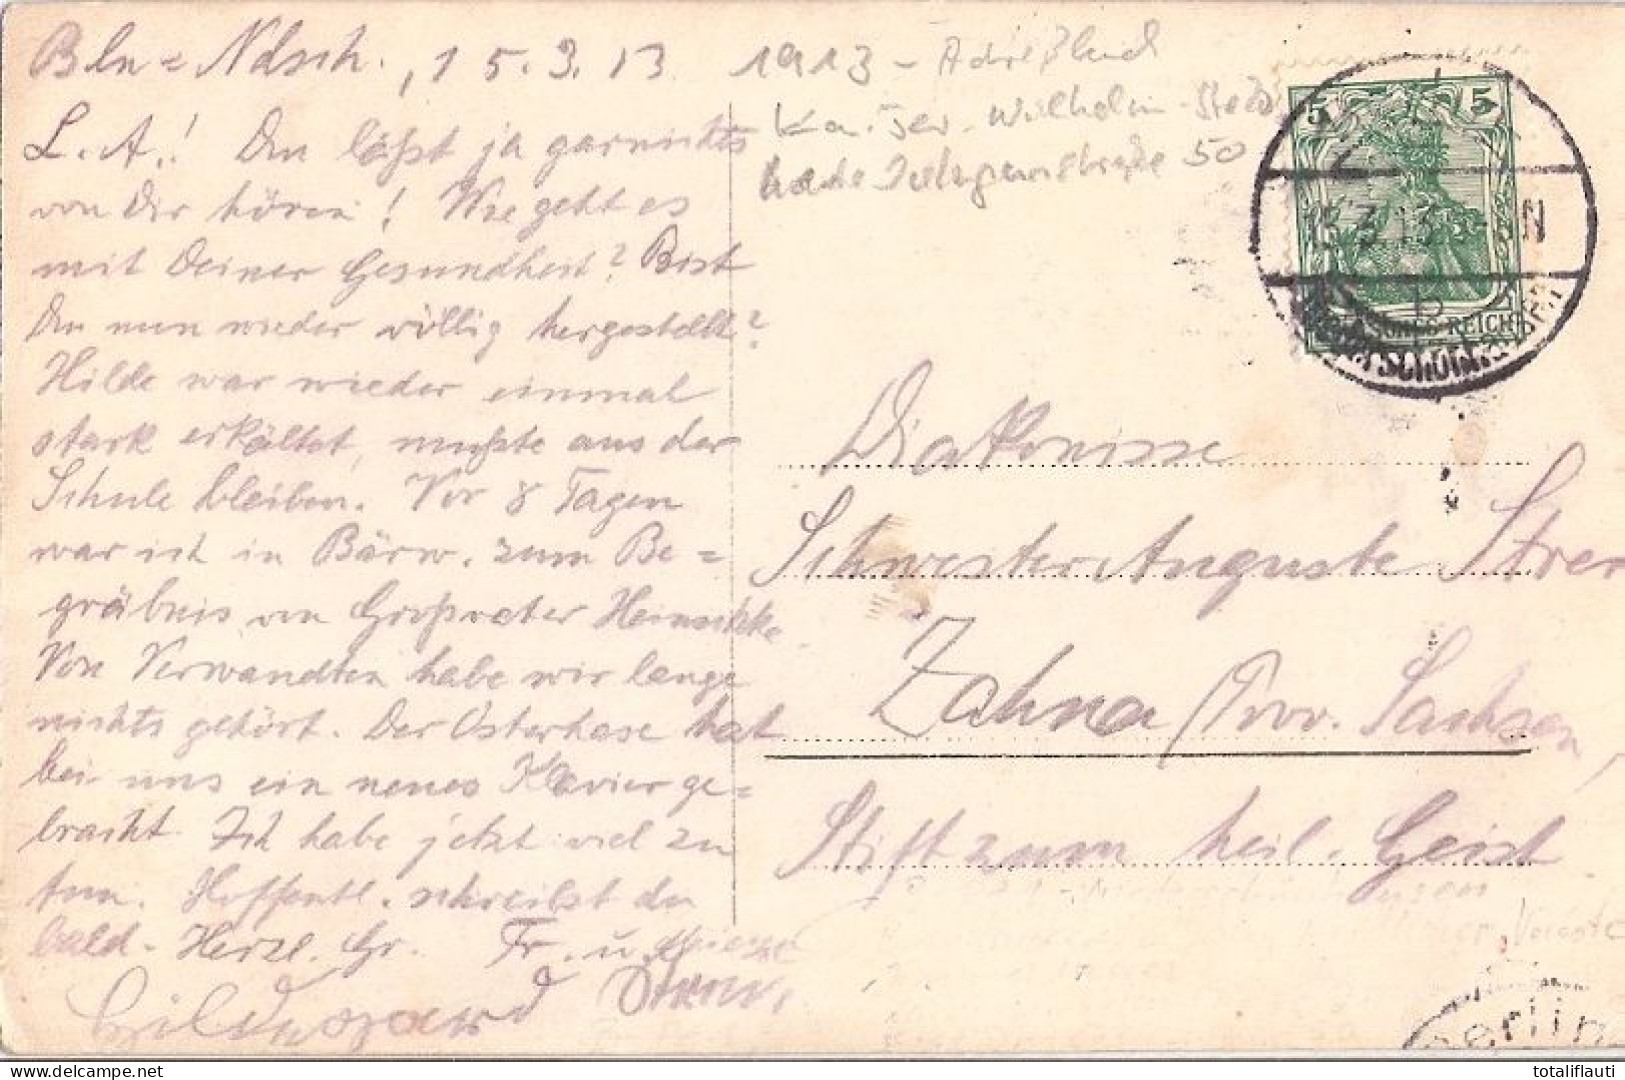 Bln = Ndsch., 15.3.13
L. A.! Du läßt ja garnichts
von Dir hören! Wie geht es
mit Deiner Gesundheit? Bist
Du nun wieder völlig hergestellt?
Hilde war wieder einmal
stark erkältet, mußte aus der
Schule bleiben. Vor 8 Tagen
war ich in Bärw. zum Be=
gräbnis von Großvater
Von Verwandten habe wir lange
nichts gehört. Der Osterhase hat
bei uns ein neues Klavier ge=
bracht. Ich habe jetzt viel zu
tun. Hoffentl. schreibst du
bald. Herzl. Gr. Fr. u.
1913 - Adreßbuch
Kaiser-Wilhelm-
50
5 5
REICH
Diakonisse
Schwester Auguste
Zahna Prov. Sachsen,
Stift zum heil. Geist
Berlin
totaliflauti
delcampe.net